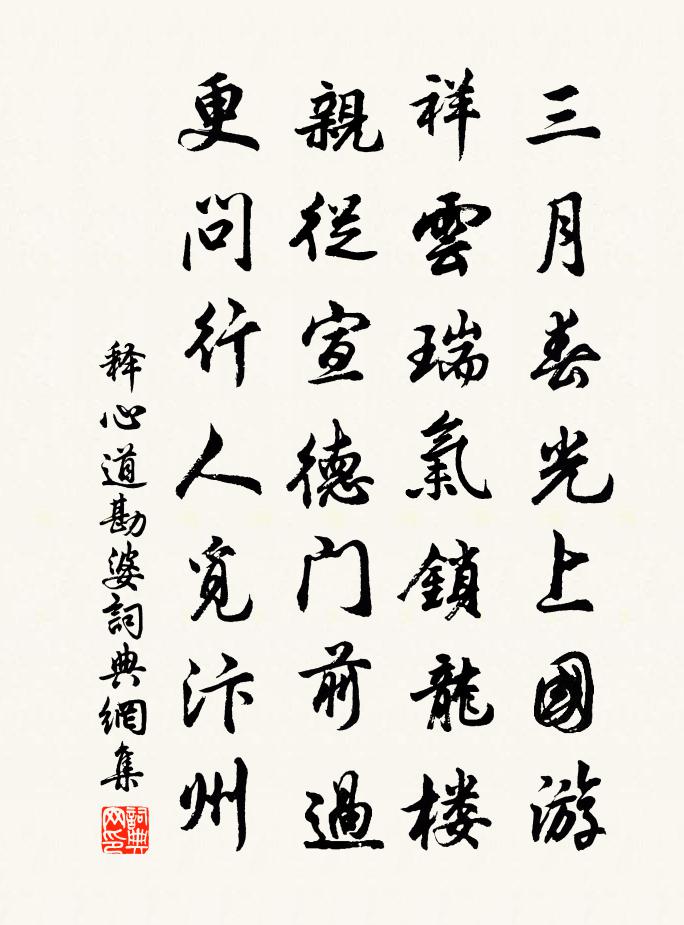 三月春光上國游
祥雲瑞氣鎖龍楼
親從宣德门前過
更问行人覓汴州
释心道勘婆詞典網集
詞典网印